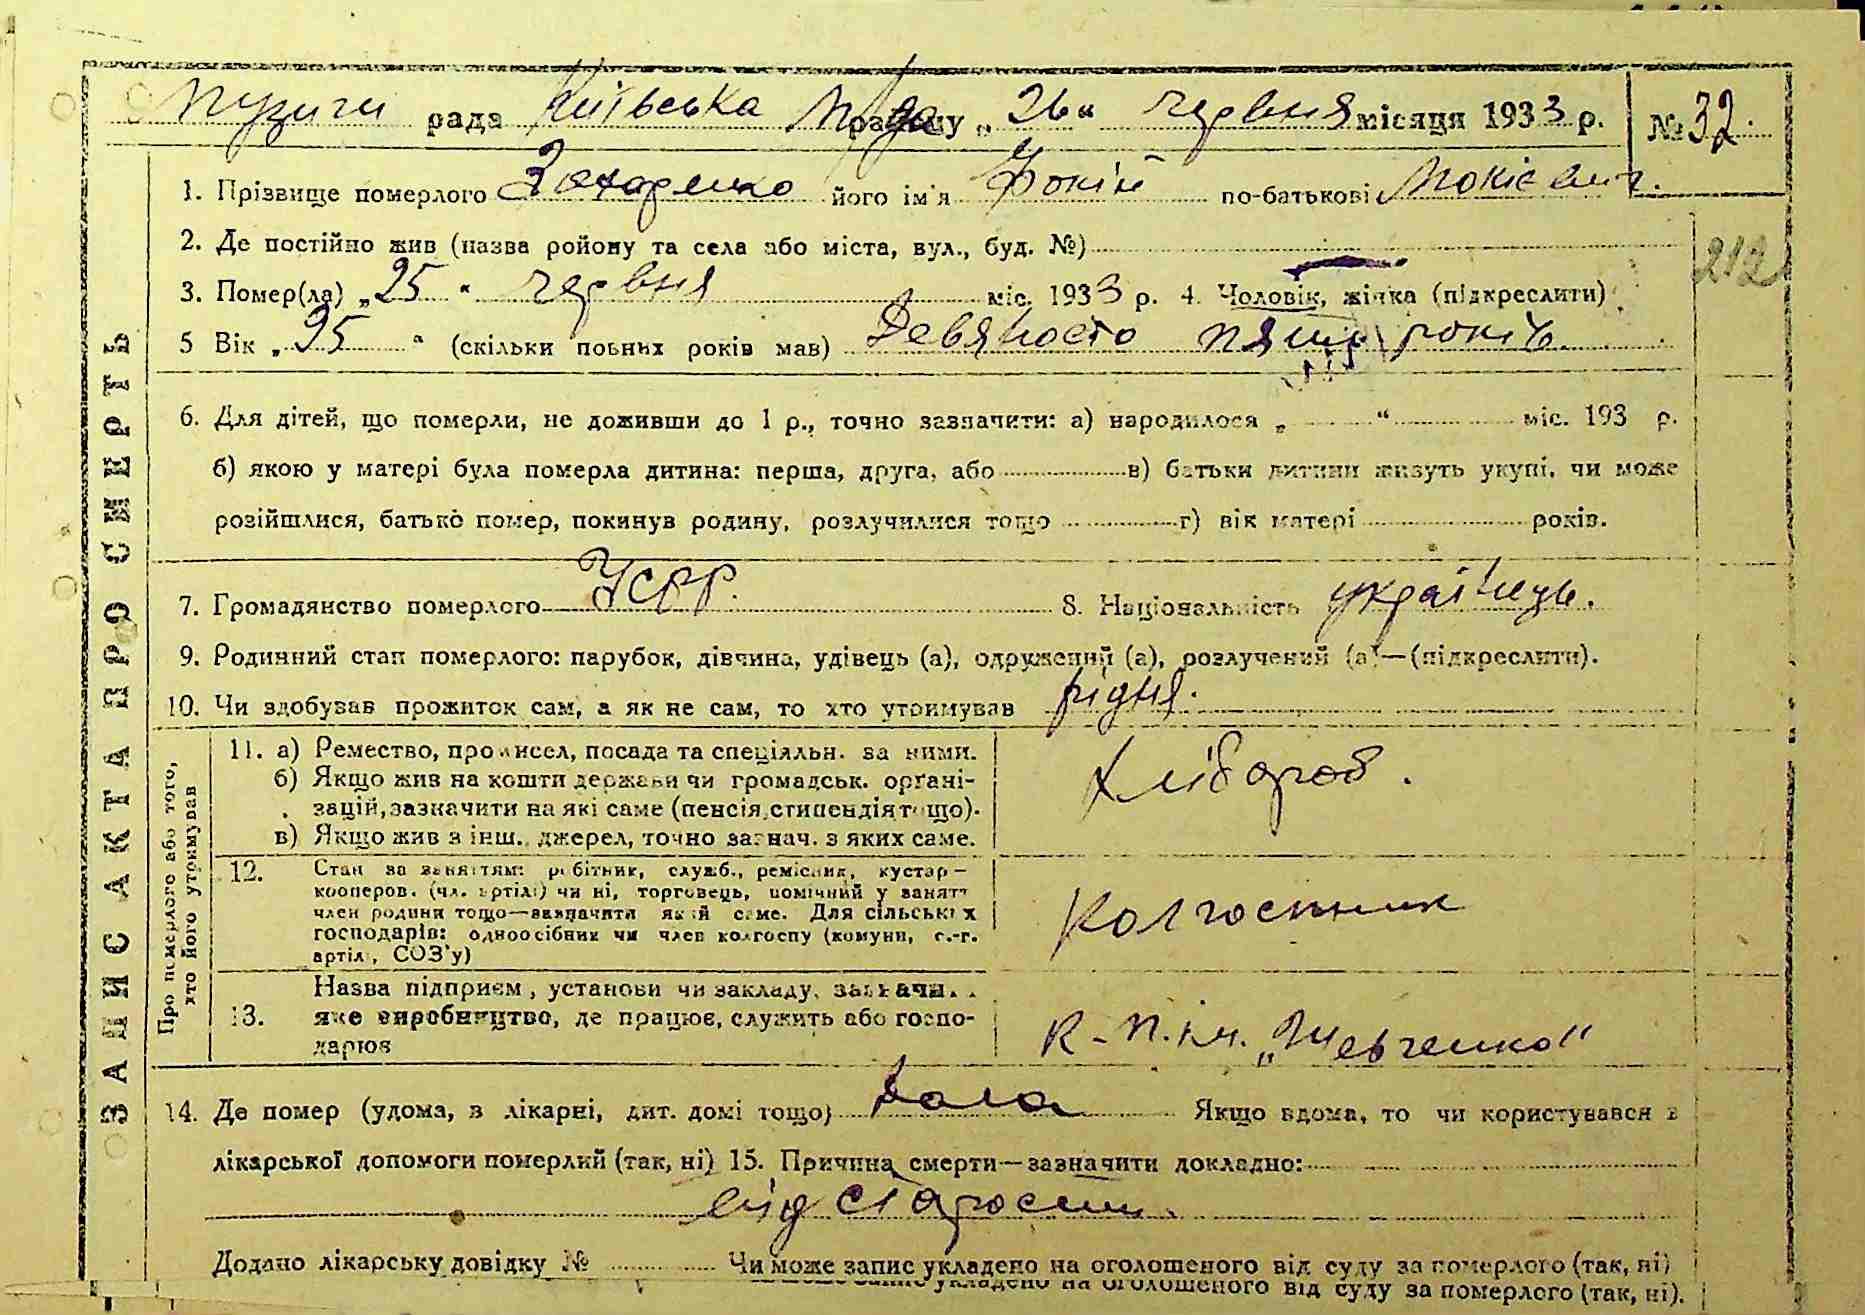 Пузирки рада Київська Міськра району „26“ червня місяця 1933 р. № 32.
1. Прізвище померлого Захаренко його ім'я Фокій по-батькові Мокієвич.
2. Де постійно жив (назва ройону та села або міста, вул., буд. №)
212
3. Помер(ла) „25“ червня міс. 1933 р. 4. Чоловік, жінка (підкреслити)
5 Вік „95“ (скільки повних років мав) Девяносто пять років.
6. Для дітей, що померли, не доживши до 1 р., точно зазначити: а) народилося „ “ міс. 193 р.
б) якою у матері була померла дитина: перша, друга, або в) батьки дитини живуть укупі, чи може
розійшлися, батько помер, покинув родину, розлучилися тощо г) вік матері років.
7. Громадянство померлого УСРР. 8. Національність українець.
9. Родинний стан померлого: парубок, дівчина, удівець (а), одружений (а), розлучений (а)—(підкреслити).
10. Чи здобував прожиток сам, а як не сам, то хто утримував рідня.
ЗАПИС АКТА ПРО СМЕРТЬ
Про померлого або того, хто його утримував
11. а) Ремество, промисел, посада та спеціяльн. за ними.
б) Якщо жив на кошти держави чи громадськ. орґані-
зацій, зазначити на які саме (пенсія, стипендія тощо).
в) Якщо жив з інш. джерел, точно зазнач. з яких саме.
Хлібороб.
12. Стан за заняттям: робітник, служб., ремісник, кустар—
кооперов. (чл. артілі) чи ні, торговець, помічний у занятт
член родини тощо—зазначити який саме. Для сільських
господарів: одноосібник чи член колгоспу (комуни, с.-г.
артіл., СОЗ'у)
Колгоспник
13. Назва підприєм., установи чи закладу, зазначи..
яке виробництво, де працює, служить або госпо-
дарює
К-п. ім. „Шевченко“
14. Де помер (удома, в лікарні, дит. домі тощо) дома Якщо вдома, то чи користувався з
лікарської допомоги померлий (так, ні) 15. Причина смерти—зазначити докладно:
від старости.
Додано лікарську довідку № Чи може запис укладено на оголошеного від суду за померлого (так, ні)
укладено на оголошеного від суду за померлого (так, ні).